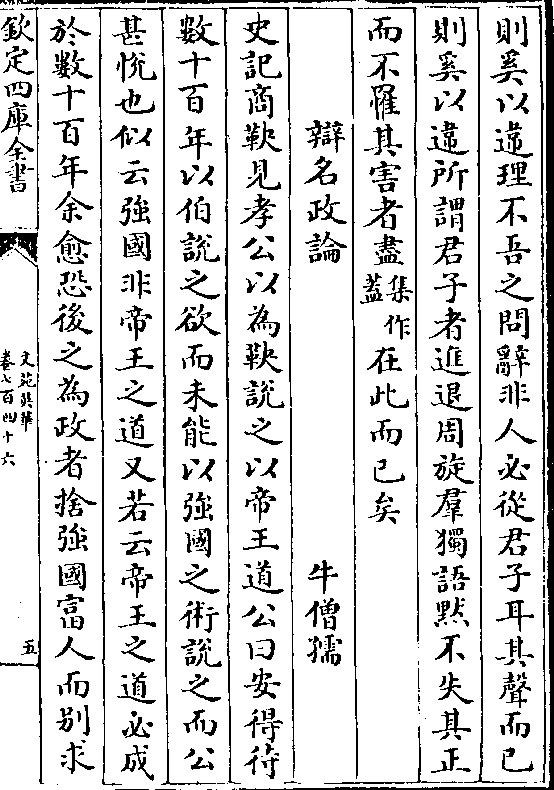 則奚以違理不吾之問辭非人必從君子耳其聲而已
則奚以違所謂君子者進退周旋羣獨語默不失其正
而不罹其害者盡集作蓋在此而已矣
辯名政論 牛僧孺
史記商鞅見孝公以為鞅說之以帝王道公曰安得待
數十百年以伯說之欲而未能以強國之術說之而公
甚悅也似云強國非帝王之道又若云帝王之道必成
於數十百年余愈恐後之為政者捨強國富人而別求
欽定四庫全書
文苑英華
卷七百四十六
五